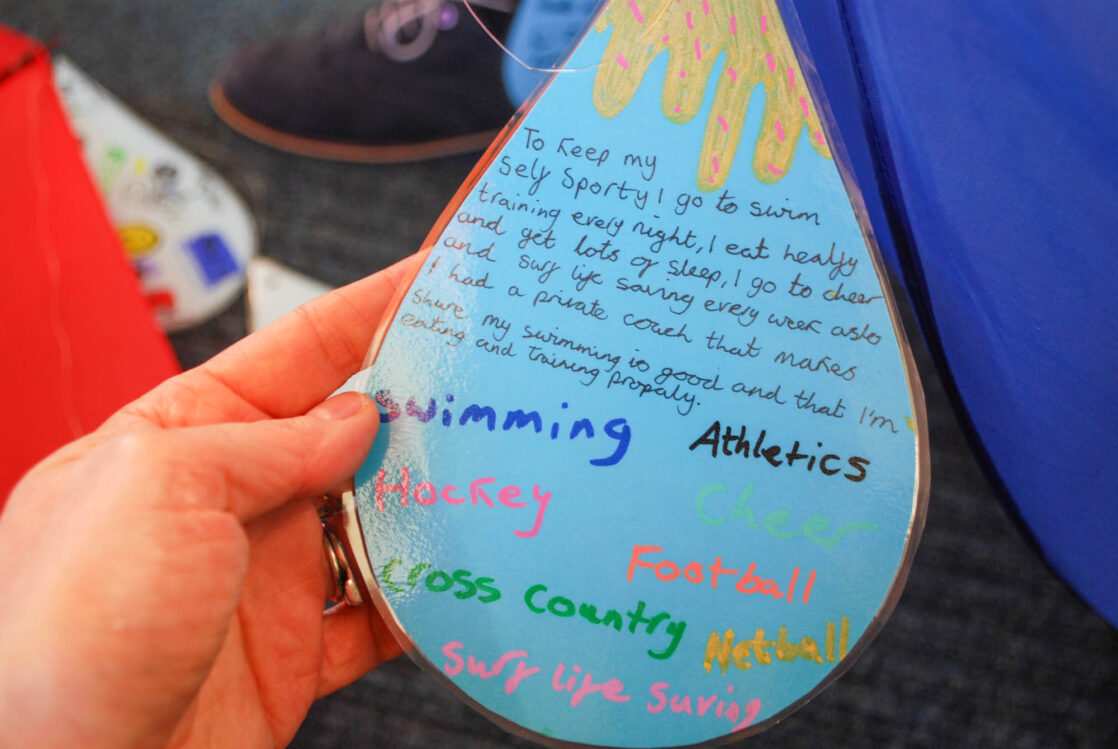 To Keep my
Self Sporty I go to swim
training every night, I eat healfy
and get lots of sleep, I go to cheer
and surf life saving every week aslo
I had a private couch that makes
shure my swimming is good and that I'm
eating and training propaly.
Swimming
Athletics
Hockey
Cheer
Football
Cross Country
Netball
Surf life suving